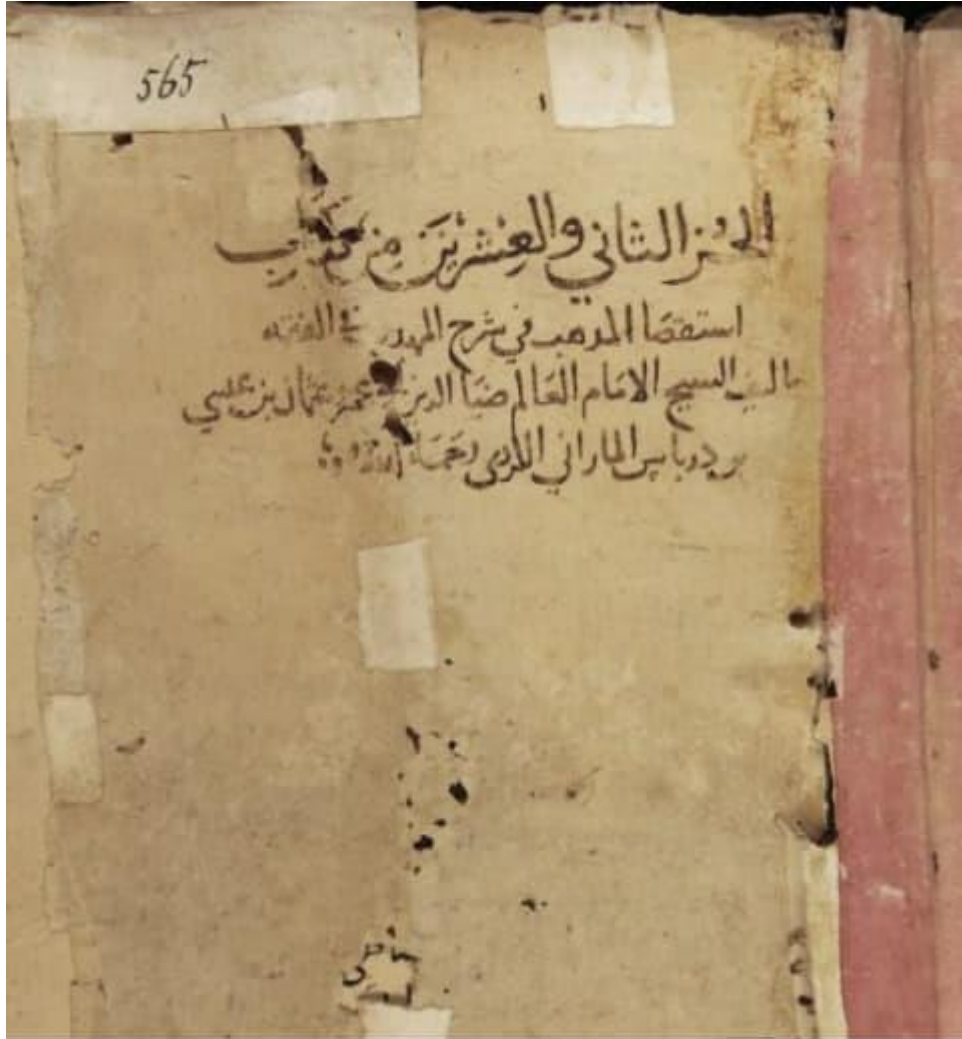 565
الجز الثاني والعشرين من كتاب
استقصا المذهب في شرح المهذب في الفقه
تاليف الشيخ الامام العالم ضيا الدين ابي عمرو عثمان بن عيسي
بن درباس الماراني الكردي رحمه الله